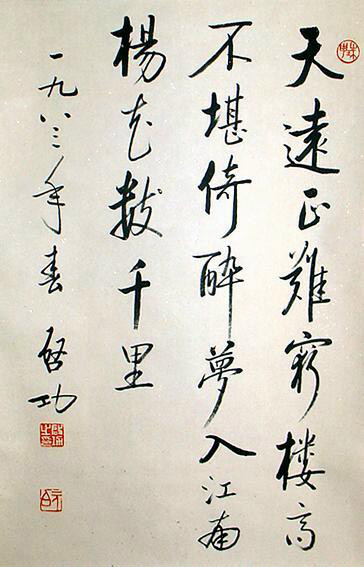 天遠正難窮楼高
不堪倚醉夢入江南
楊花數千里
一九八三年春 啓功